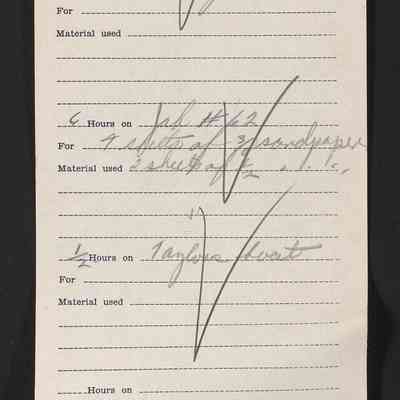 For
Material used
6 Hours on Job #62
For 4 sheets of 3/0 sandpaper
Material used 2 sheets of 1/2 " " "
1/2 Hours on Taylors boat
For
Material used
Hours on